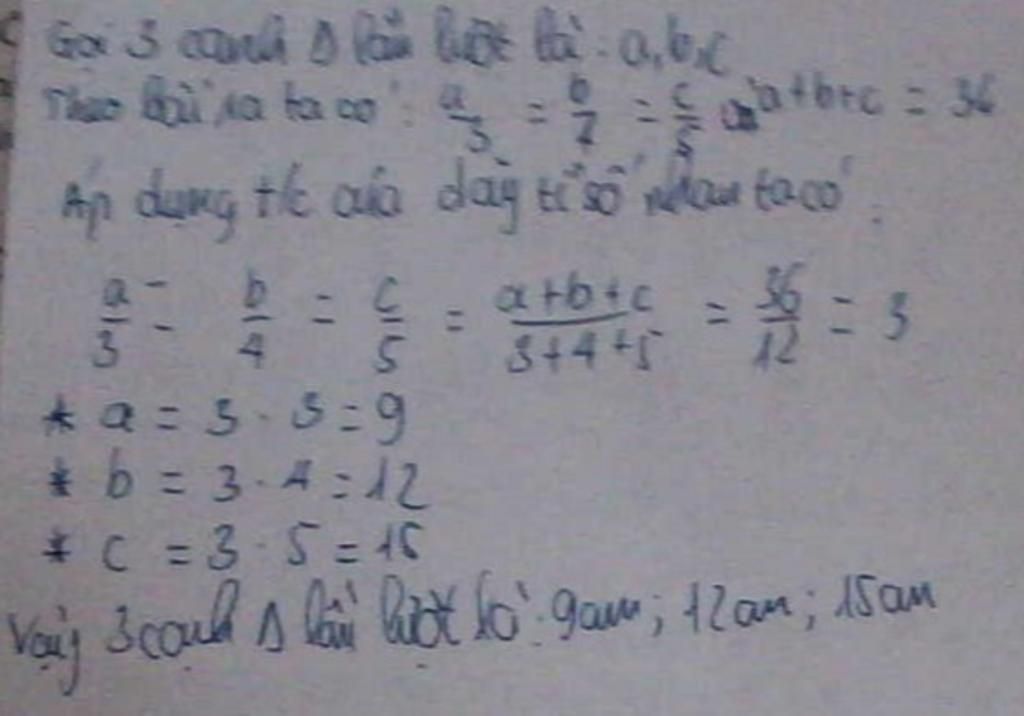 Gọi 3 cạnh Δ lần lượt là: a,b,c
Theo bài ra ta có: a/3 = b/4 = c/5 và a+b+c = 36
Áp dụng t/c của dãy tỉ số nhau ta có:
a/3 = b/4 = c/5 = (a+b+c)/(3+4+5) = 36/12 = 3
* a = 3 . 3 = 9
* b = 3 . 4 = 12
* c = 3 . 5 = 15
Vậy 3 cạnh Δ lần lượt là: 9cm; 12cm; 15cm